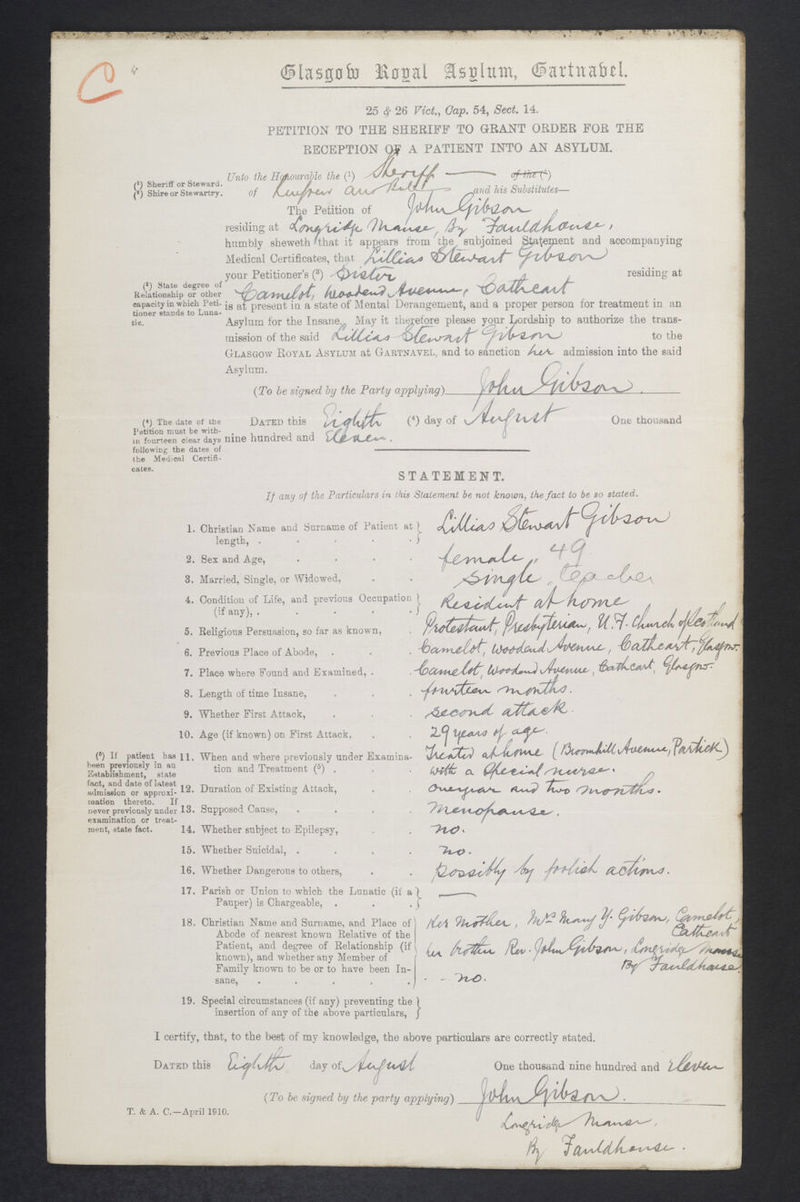 C
Glasgow Royal Asylum, Gartnavel.
25 & 26 Vict., Cap. 54, Sect. 14.
PETITION TO THE SHERIFF TO GRANT ORDER FOR THE
RECEPTION OF A PATIENT INTO AN ASYLUM.
(1) Sheriff or Steward.
(2) Shire or Stewartry.
Unto the Honourable the (1) Sheriff of the (2)
of Renfrew and Bute and his Substitutes—
The Petition of John Gibson
residing at Longridge Manse, By Fauldhouse,
humbly sheweth that it appears from the subjoined Statement and accompanying
Medical Certificates, that Lillias Stewart Gibson
(3) State degree of
Relationship or other
capacity in which Peti-
tioner stands to Luna-
tic.
your Petitioner's (3) Sister residing at
Camelot, Woodend Avenue, Cathcart
is at present in a state of Mental Derangement, and a proper person for treatment in an
Asylum for the Insane. May it therefore please your Lordship to authorize the trans-
mission of the said Lillias Stewart Gibson to the
GLASGOW ROYAL ASYLUM at GARTNAVEL, and to sanction her admission into the said
Asylum.
(To be signed by the Party applying) John Gibson.
(4) The date of the
Petition must be with-
in fourteen clear days
following the dates of
the Medical Certifi-
cates.
DATED this Eighth (4) day of August One thousand
nine hundred and Eleven.
STATEMENT.
If any of the Particulars in this Statement be not known, the fact to be so stated.
1. Christian Name and Surname of Patient at
length, . . . . . Lillias Stewart Gibson
2. Sex and Age, . . . . female, 49
3. Married, Single, or Widowed, . . Single, teacher
4. Condition of Life, and previous Occupation
(if any), . . . . . Resident at home
5. Religious Persuasion, so far as known, . Protestant, Presbyterian, U.F. Church of Scotland
6. Previous Place of Abode, . . . Camelot, Woodend Avenue, Cathcart, Glasgow.
7. Place where Found and Examined, . . Camelot, Woodend Avenue, Cathcart, Glasgow.
8. Length of time Insane, . . . fourteen months.
9. Whether First Attack, . . . second attack.
10. Age (if known) on First Attack, . . 29 years of age.
(5) If patient has
been previously in an
Establishment, state
fact, and date of latest
admission or approxi-
mation thereto. If
never previously under
examination or treat-
ment, state fact.
11. When and where previously under Examina- Treated at home (Broomhill Avenue, Partick)
tion and Treatment (5) . . . with a special nurse.
12. Duration of Existing Attack, . . one year and two months.
13. Supposed Cause, . . . . Menopause.
14. Whether subject to Epilepsy, . . no.
15. Whether Suicidal, . . . . no.
16. Whether Dangerous to others, . . Possibly by foolish actions.
17. Parish or Union to which the Lunatic (if a
Pauper) is Chargeable, . . . —
18. Christian Name and Surname, and Place of Her Mother, Mrs Mary Y. Gibson, Camelot,
Cathcart
Abode of nearest known Relative of the
Patient, and degree of Relationship (if her brother Rev. John Gibson, Longridge Manse
known), and whether any Member of By Fauldhouse.
Family known to be or to have been In-
sane, . . . . . - - no.
19. Special circumstances (if any) preventing the
insertion of any of the above particulars,
I certify, that, to the best of my knowledge, the above particulars are correctly stated.
DATED this Eighth day of August One thousand nine hundred and eleven
(To be signed by the party applying) John Gibson.
T. & A. C.—April 1910.
Longridge Manse,
By Fauldhouse.